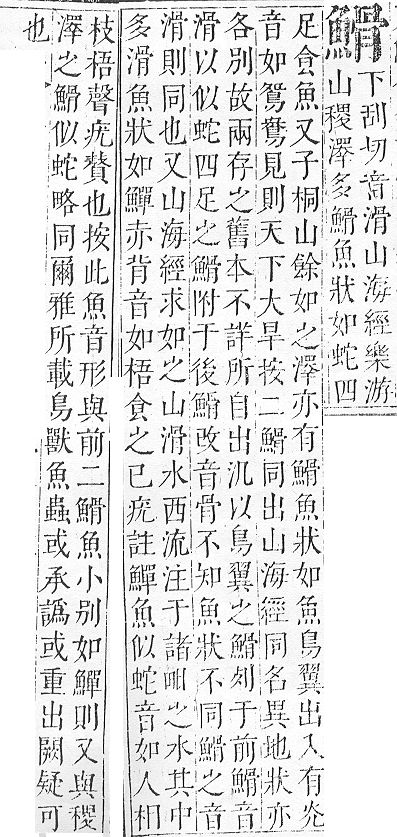 䱻下刮切音滑山海經樂游
山稷澤多䱻魚狀如蛇四
足食魚又子桐山餘如之澤亦有䱻魚狀如魚鳥翼出入有炗
音如鴛鴦見則天下大旱按二䱻同出山海經同名異地狀亦
各別故兩存之舊本不詳所自出汎以鳥翼之䱻列于前䱻音
滑以似蛇四足之䱻附于後䱻改音骨不知魚狀不同䱻之音
滑則同也又山海經求如之山滑水西流注于諸毗之水其中
多滑魚狀如鱓赤背音如梧食之已疣註鱓魚似蛇音如人相
枝梧聲疣贅也按此魚音形與前二䱻魚小别如鱓則又與稷
澤之䱻似蛇略同爾雅所載鳥獸魚蟲或承譌或重出闕疑可
也